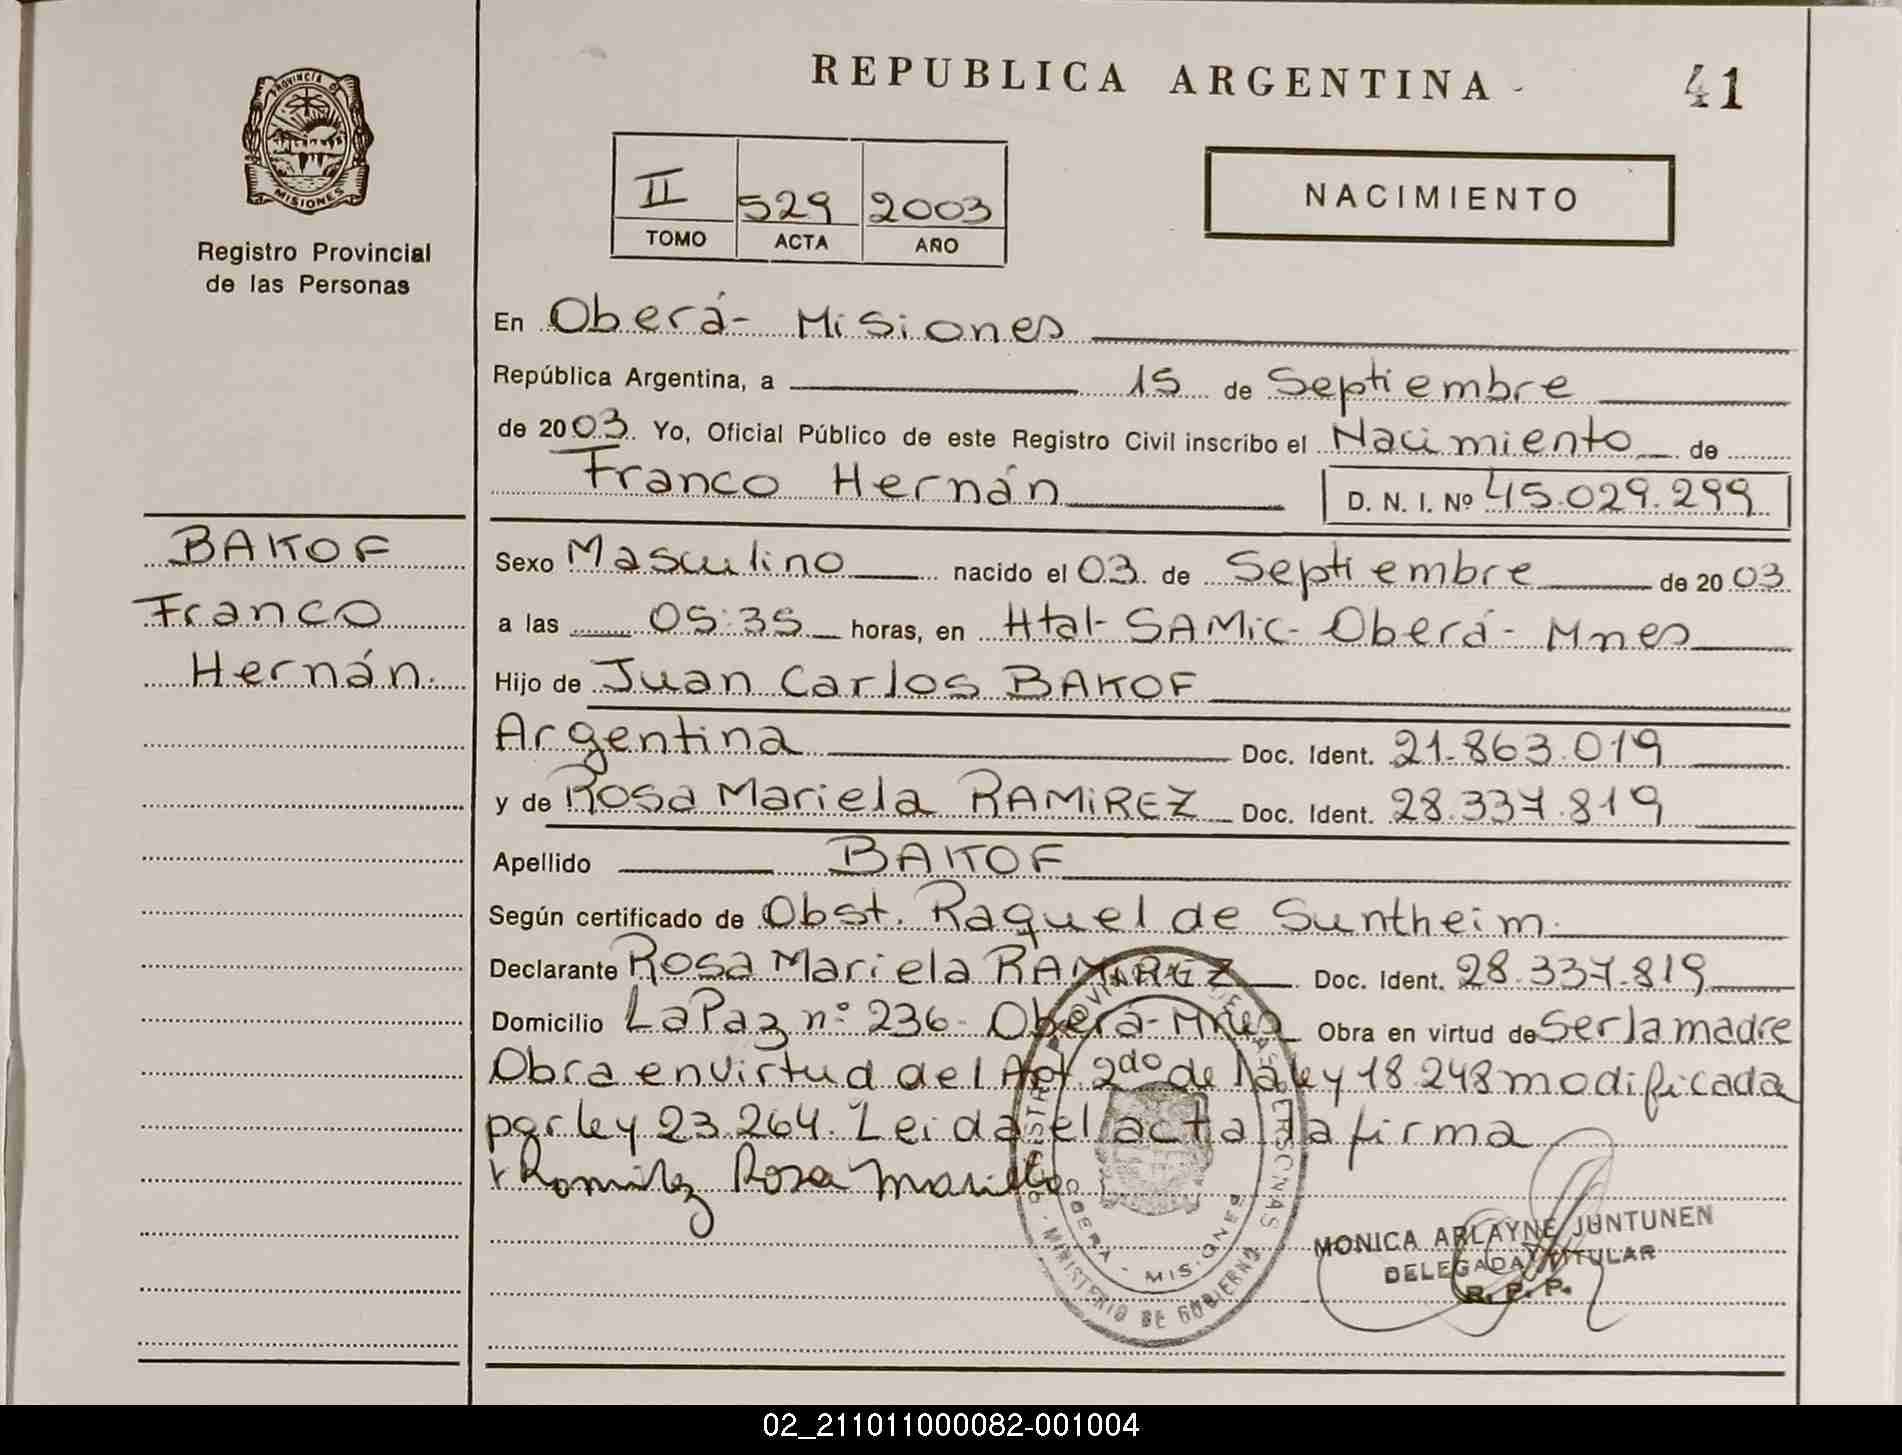 REPUBLICA ARGENTINA
41
PROVINCIA DE MISIONES
Registro Provincial
de las Personas
II 529 2003
TOMO ACTA AÑO
NACIMIENTO
En Oberá- Misiones
República Argentina, a 15 de Septiembre
de 2003. Yo, Oficial Público de este Registro Civil inscribo el Nacimiento de
Franco Hernán D. N. I. Nº 45.029.299
BAKOF
Franco
Hernán.
Sexo Masculino nacido el 03 de Septiembre de 2003
a las 05:35 horas, en Htal- SAMiC- Oberá- Mnes
Hijo de Juan Carlos BAKOF
Argentina Doc. Ident. 21.863.019
y de Rosa Mariela RAMiREZ Doc. Ident. 28.337.819
Apellido BAKOF
Según certificado de Obst. Raquel de Suntheim.
Declarante Rosa Mariela RAMiREZ Doc. Ident. 28.337.819
Domicilio La Paz nº 236- Oberá- Mnes Obra en virtud de Ser la madre
Obra en virtud del Art. 2do de la ley 18.248 modificada
por ley 23.264. Leida el acta la firma
Ramirez Rosa Mariela
OBERA - MISIONES
MINISTERIO DE GOBIERNO
MONICA ARLAYNE JUNTUNEN
DELEGADA TITULAR
R. P. P.
02_211011000082-001004